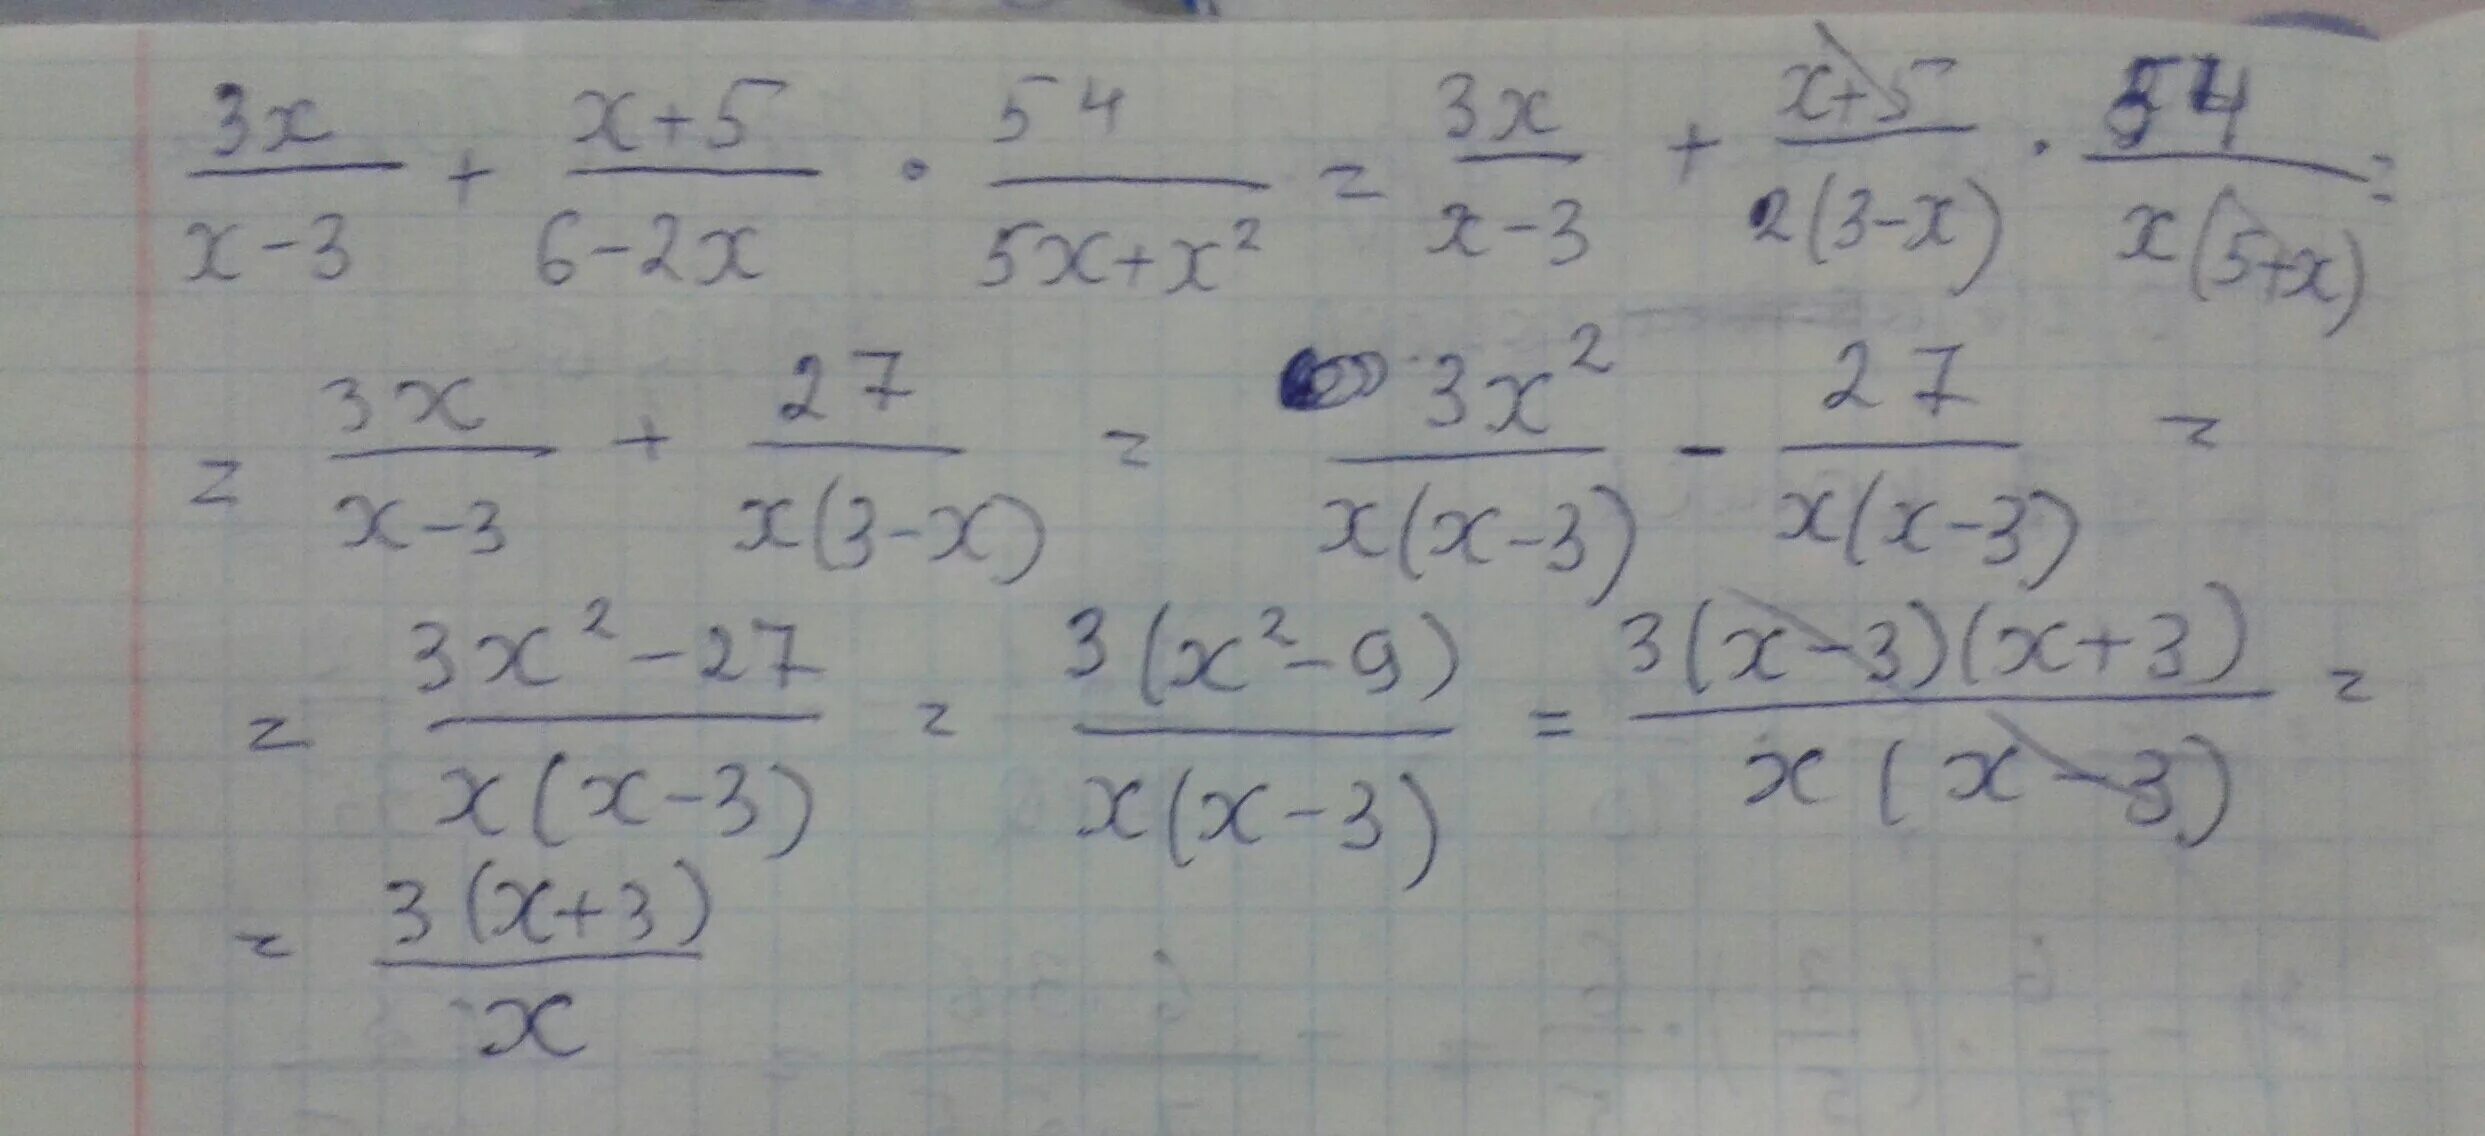 3x/(x-3) + (x+5)/(6-2x) · 54/(5x+x²) = 3x/(x-3) + (x+5)/(2(3-x)) · 54/(x(5+x)) =
= 3x/(x-3) + 27/(x(3-x)) = 3x²/(x(x-3)) - 27/(x(x-3)) =
= (3x²-27)/(x(x-3)) = 3(x²-9)/(x(x-3)) = 3(x-3)(x+3)/(x(x-3)) =
= 3(x+3)/x